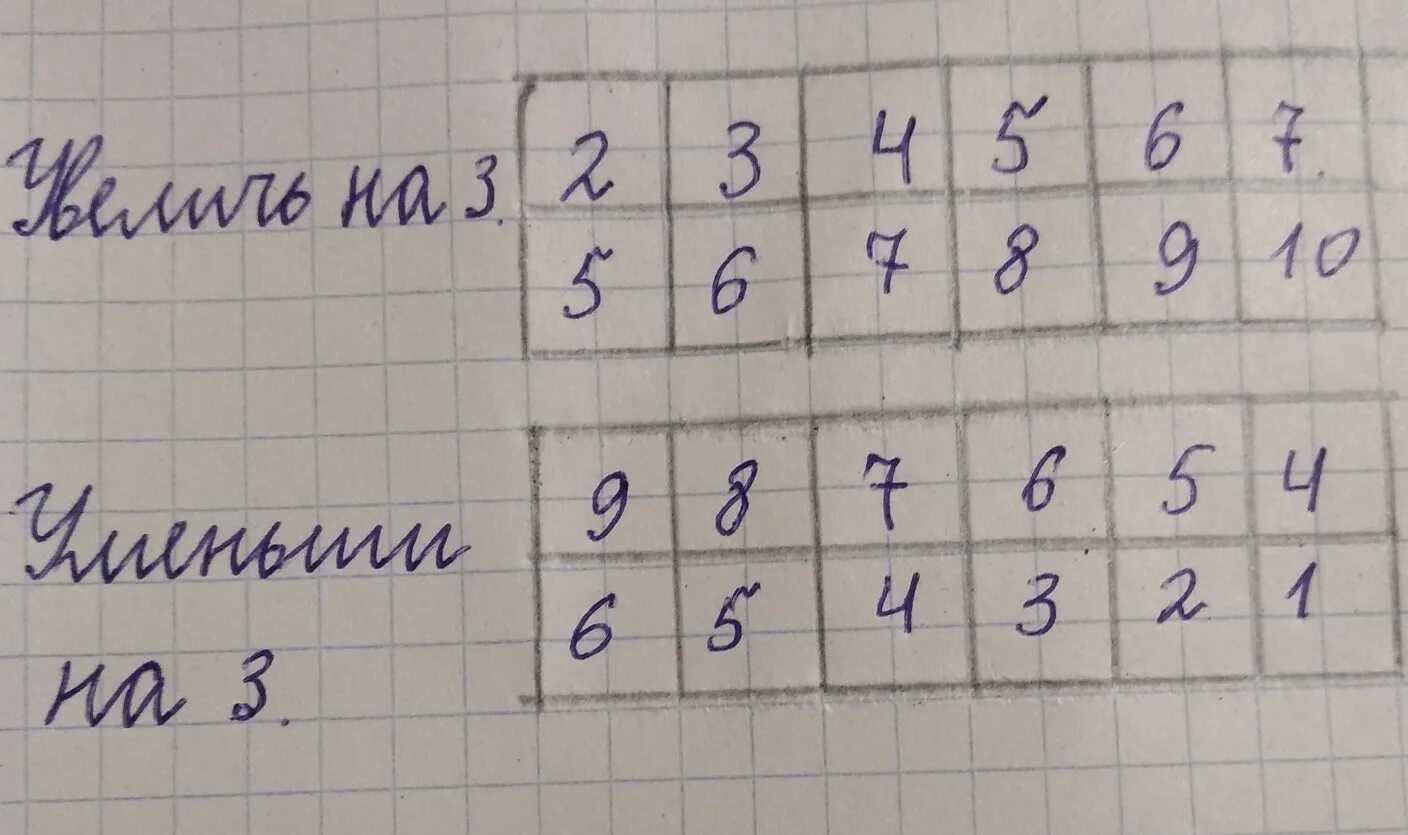 Увеличь на 3.
2 3 4 5 6 7.
5 6 7 8 9 10
Уменьши
на 3.
9 8 7 6 5 4
6 5 4 3 2 1